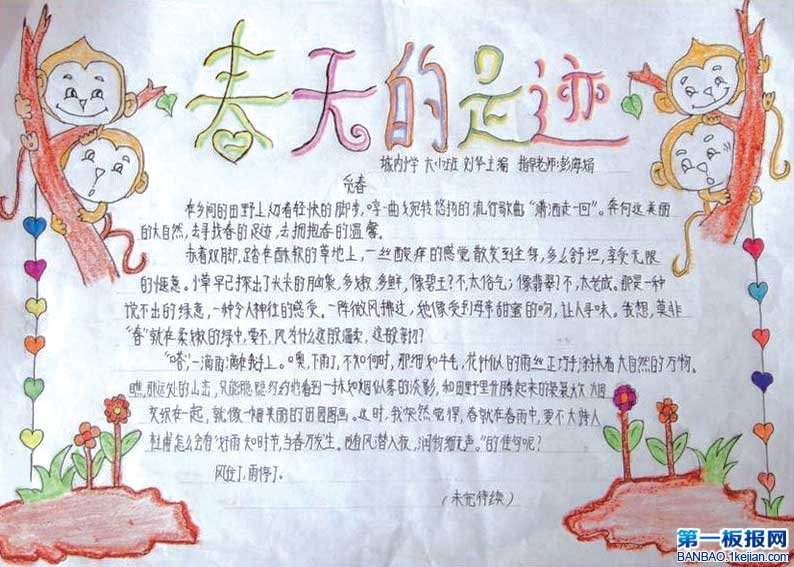 春天的足迹
城内小学 六(1)班 刘华主编 指导老师:彭海娟
觅春
在乡间的田野上,迈着轻快的脚步,哼一曲宛转悠扬的流行歌曲“潇洒走一回”。奔向这美丽
的大自然,去寻找春的足迹,去拥抱春的温馨。
赤着双脚,踏在酥软的草地上,一丝酸痒的感觉散发到全身,多么舒坦,享受无限
的惬意。小草早已探出了尖尖的脑袋,多嫩,多鲜,像碧玉?不,太俗气;像翡翠?不,太老成。那是一种
说不出的绿意,一种令人神往的感受。一阵微风拂过,她像受到母亲甜蜜的吻,让人寻味。我想,莫非
“春”就在柔嫩的绿中,要不,风为什么这般温柔,这般
“嗒”一滴雨
噢,下雨了,不知何时,那细如牛毛,花针似的雨丝正巧
着大自然的万物。
瞧,那远处的山峦,只能隐隐约约地看到一抹如烟似雾的淡影,和田野里升腾起来的袅袅炊烟
交织在一起,就像一幅美丽的田园图画。这时,我突然觉得,春就在春雨中,要不大诗人
杜甫怎么会有“好雨知时节,当春乃发生。随风潜入夜,润物细无声。”的佳句呢?
风住了,雨停了。
(未完待续)
第一板报网
BANBAO.1kejian.com